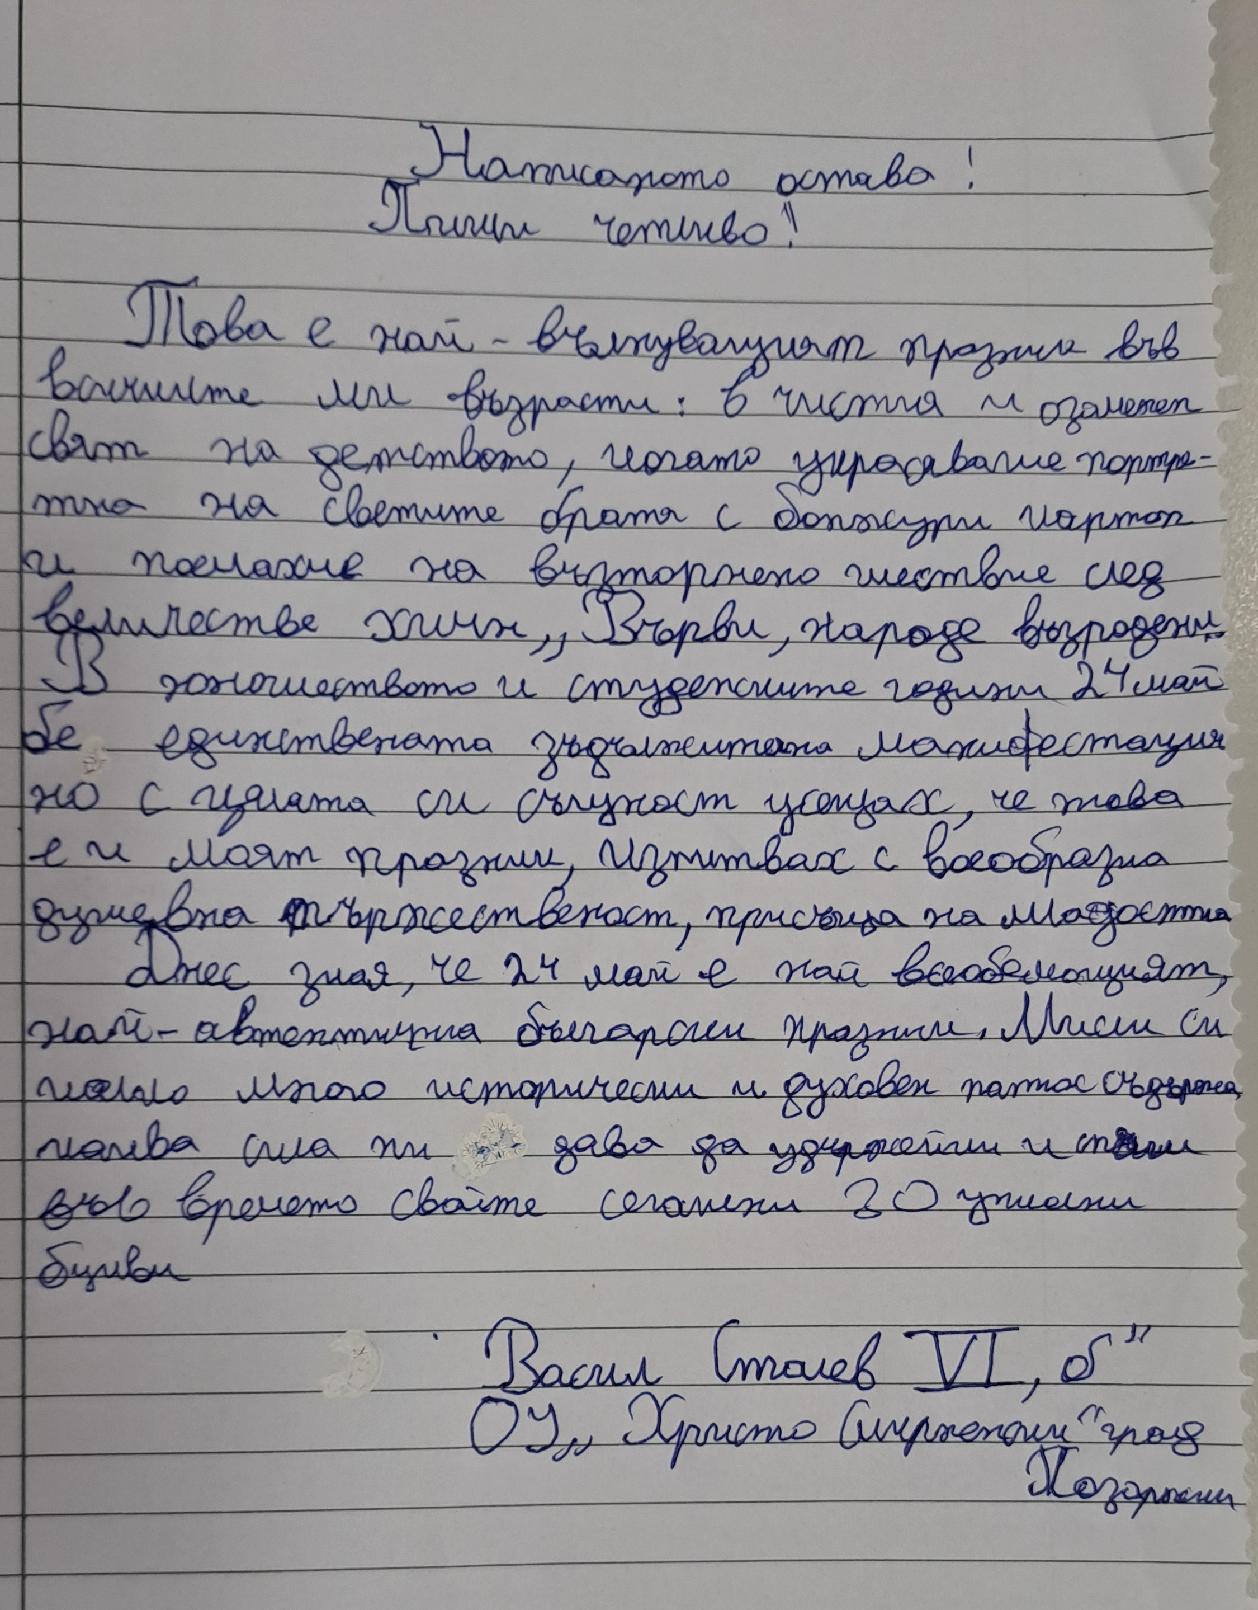 Написаното остава!
Пиши четливо!
Това е най-вълнуващият празник във
всичките ми възрасти: в чистия и озаменен
свят на детството, когато украсявахме портре-
тна на светите братя с божжури картон
и поемахме на възторжено шествие след
величестве химн „Върви, народе възродени
В юношеството и студенските години 24 май
бе единствената задължителна манифестация
но с цялата си същност усещах, че това
е и моят празник, изпитвах с всеобразна
душевна тържественост, присъща на младостта
Днес зная, че 24 май е най всеобемощият,
най-автентична български празник. Мисли си
колко много исторически и духовен патос съдържа,
каква сила ни дава да удържейки и
във времето свойте сегашни 30 уписани
букви
Васил Сталев VI, б"
ОУ„ Христо Смирненски" град
Пазарджик